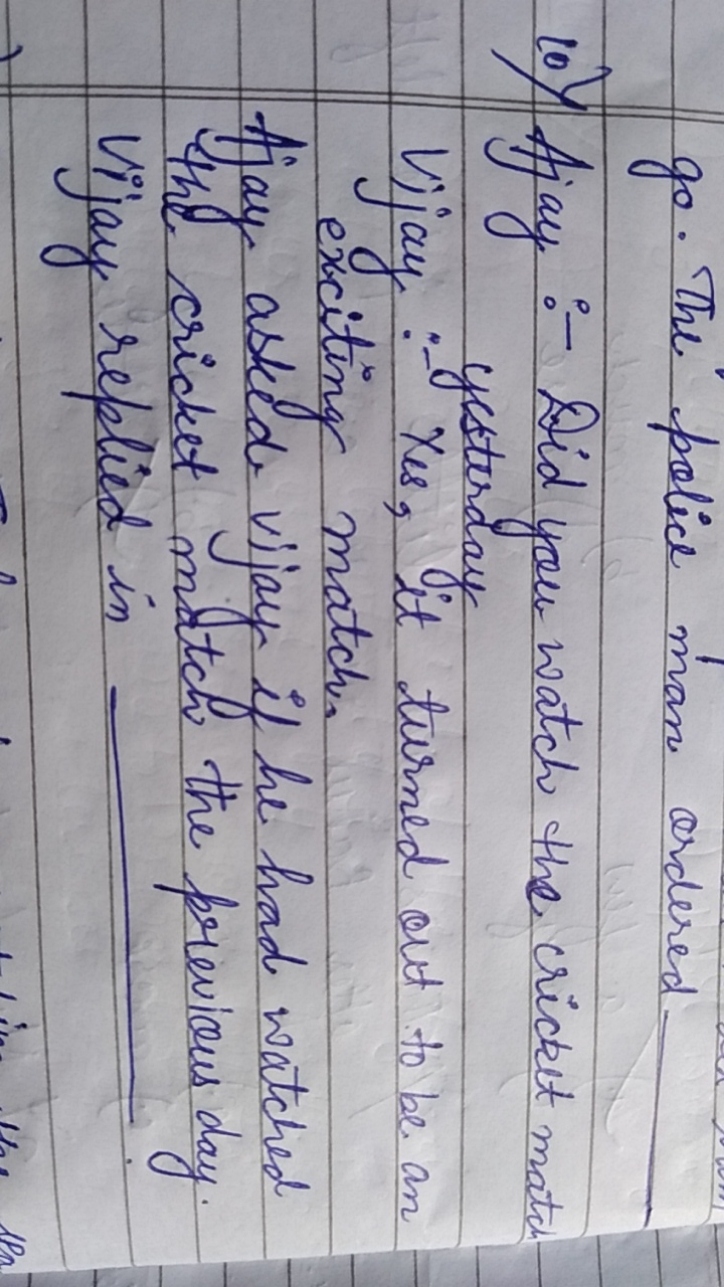 go. The police man ordered
10) Ajay :- Did you watch the cricket match
yesterday
Vijay :- Yes, it turned out to be an
exciting match.
Ajay asked vijay if he had watched
the cricket match the previous day.
Vijay replied in